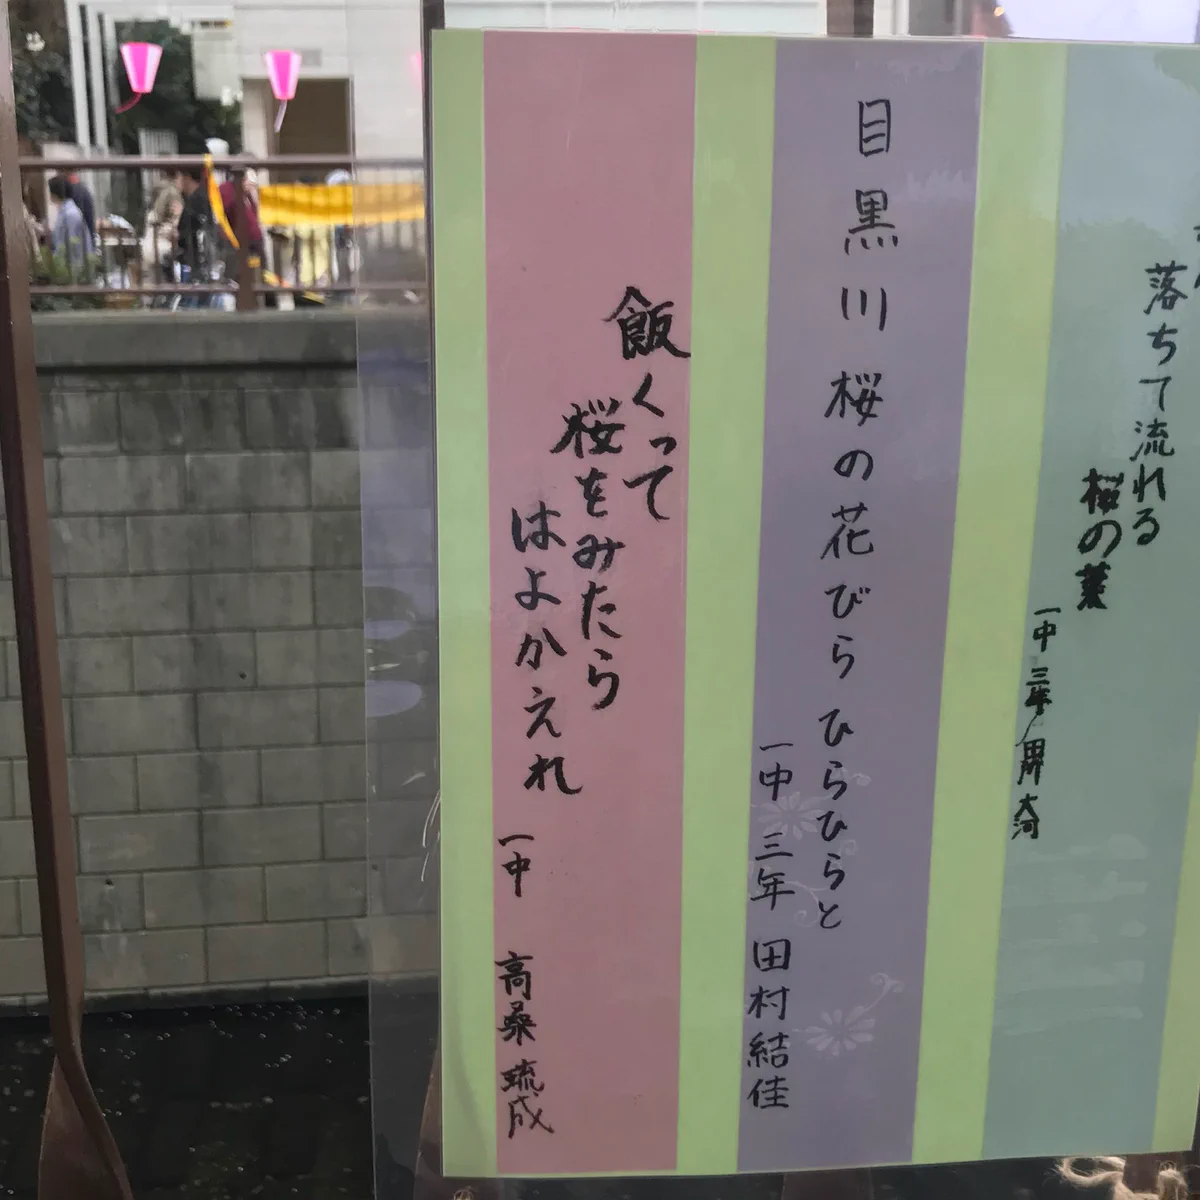 落ちて流れる
桜の葉
一中 三年
大河
目黒川 桜の花びら ひらひらと
一中 三年 田村結佳
飯くって
桜をみたら
はよかえれ
一中 高桑 琉成